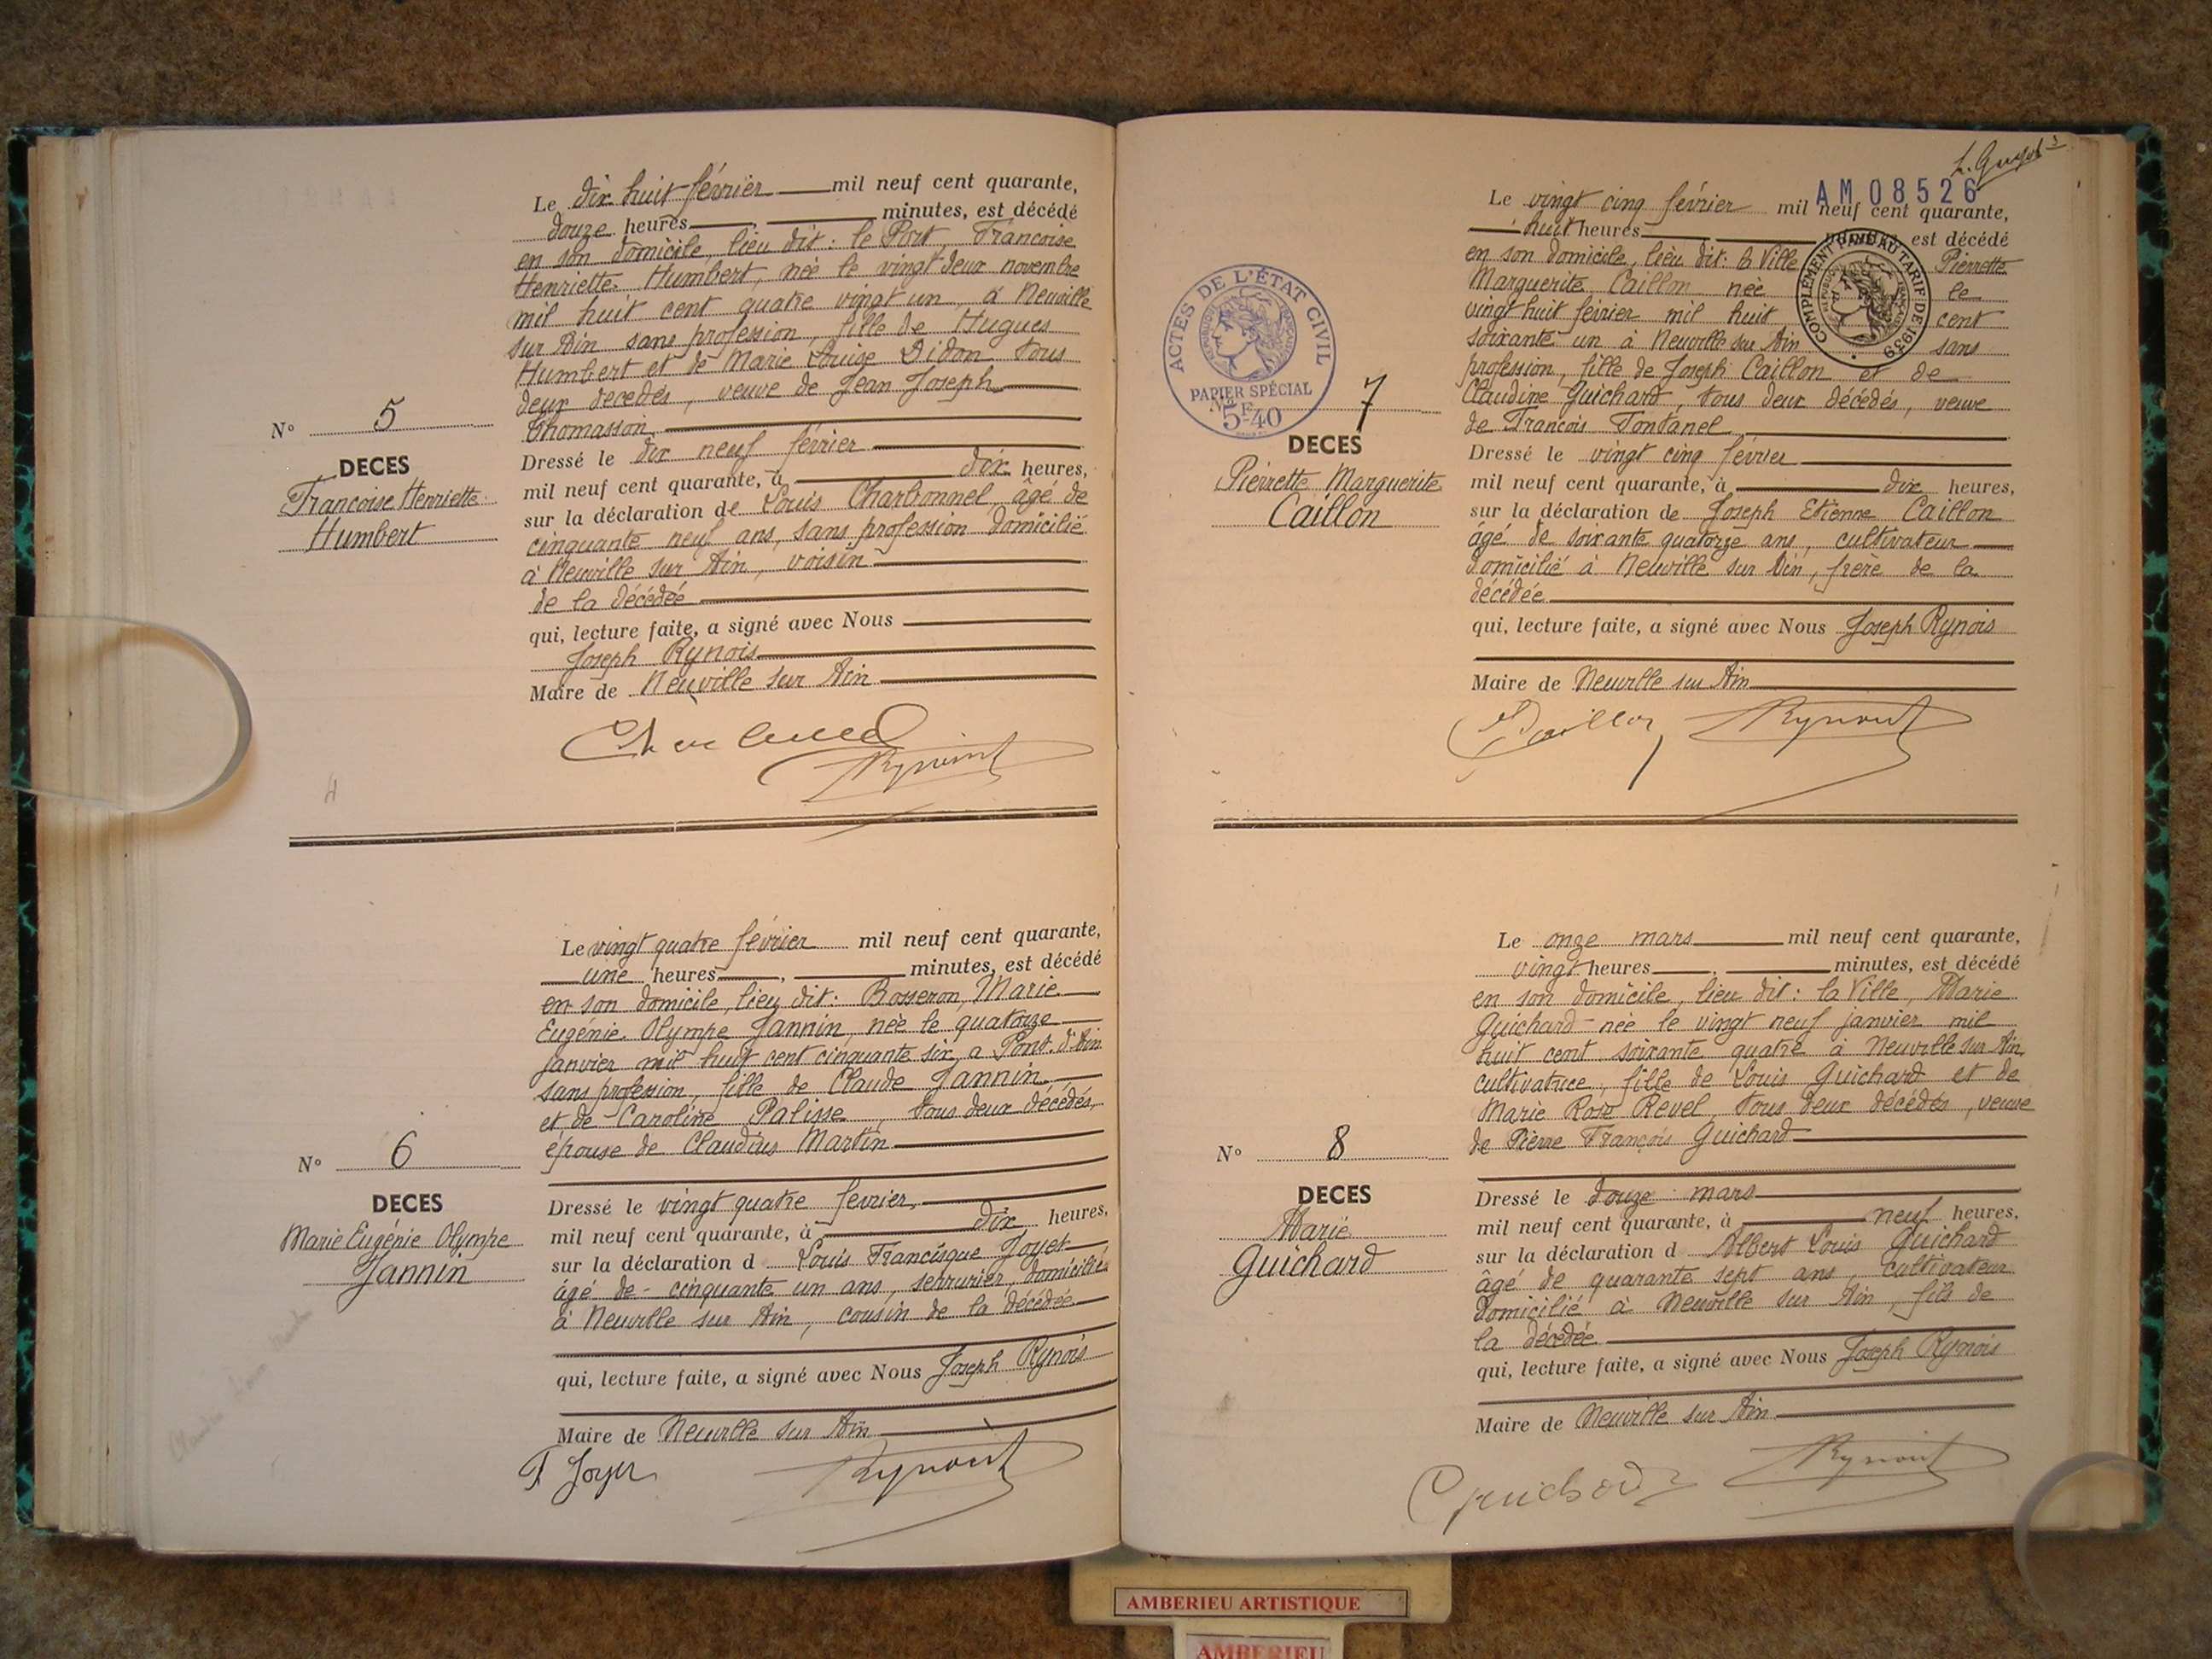 Le dix huit février mil neuf cent quarante,
douze heures minutes, est décédé
en son domicile, lieu dit : le Port, Francoise
Henriette Humbert, née le vingt deux novembre
mil huit cent quatre vingt un, à Neuville
sur Ain sans profession, fille de Hugues
Humbert et de Marie Louise Didon tous
deux décédés, veuve de Jean Joseph
Thomasson.
N° 5
DECES
Francoise Henriette
Humbert
Dressé le dix neuf février
mil neuf cent quarante, à dix heures,
sur la déclaration de Louis Charbonnel, âgé de
cinquante neuf ans, sans profession domicilié
à Neuville sur Ain, voisin
de la décédée
qui, lecture faite, a signé avec Nous
Joseph Rynois
Maire de Neuville sur Ain
4
Le vingt quatre février mil neuf cent quarante,
une heures minutes, est décédé
en son domicile, lieu dit : Bosseron, Marie
Eugénie Olympe Jannin, née le quatorze
janvier mil huit cent cinquante six, a Pont d'Ain
sans profession, fille de Claude Jannin
et de Caroline Palisse, tous deux décédés,
épouse de Claudius Martin
N° 6
DECES
Marie Eugénie Olympe
Jannin
Dressé le vingt quatre fevrier,
mil neuf cent quarante, à dix heures,
sur la déclaration d Louis Francisque Joyet
âgé de cinquante un ans, serrurier, domicilié
à Neuville sur Ain, cousin de la décédée
qui, lecture faite, a signé avec Nous Joseph Rynois
Maire de Neuville sur Ain
AM 08526
Le vingt cinq février mil neuf cent quarante,
huit heures minutes, est décédé
en son domicile, lieu dit : la Ville Pierrette
Marguerite Caillon née le
vingt huit février mil huit cent
soixante un à Neuville sur Ain sans
profession, fille de Joseph Caillon et de
Claudine Guichard, tous deux décédés, veuve
de Francois Fontanel
COMPLÉMENT PAYÉ AU TARIF DE 1939
ACTES DE L'ÉTAT CIVIL
PAPIER SPÉCIAL
5F40
N° 7
DECES
Pierrette Marguerite
Caillon
Dressé le vingt cinq février
mil neuf cent quarante, à dix heures,
sur la déclaration de Joseph Etienne Caillon
âgé de soixante quatorze ans, cultivateur
domicilié à Neuville sur Ain, frère de la
décédée
qui, lecture faite, a signé avec Nous Joseph Rynois
Maire de Neuville sur Ain
Le onze mars mil neuf cent quarante,
vingt heures minutes, est décédé
en son domicile, lieu dit : la Ville, Marie
Guichard née le vingt neuf janvier mil
huit cent soixante quatre à Neuville sur Ain,
cultivatrice, fille de Louis Guichard et de
Marie Rose Revel, tous deux décédés, veuve
de Pierre François Guichard
N° 8
DECES
Marie
Guichard
Dressé le douze mars
mil neuf cent quarante, à neuf heures,
sur la déclaration d Albert Louis Guichard
âgé de quarante sept ans, cultivateur
domicilié à Neuville sur Ain, fils de
la décédée
qui, lecture faite, a signé avec Nous Joseph Rynois
Maire de Neuville sur Ain
AMBERIEU ARTISTIQUE
AMBERIEU